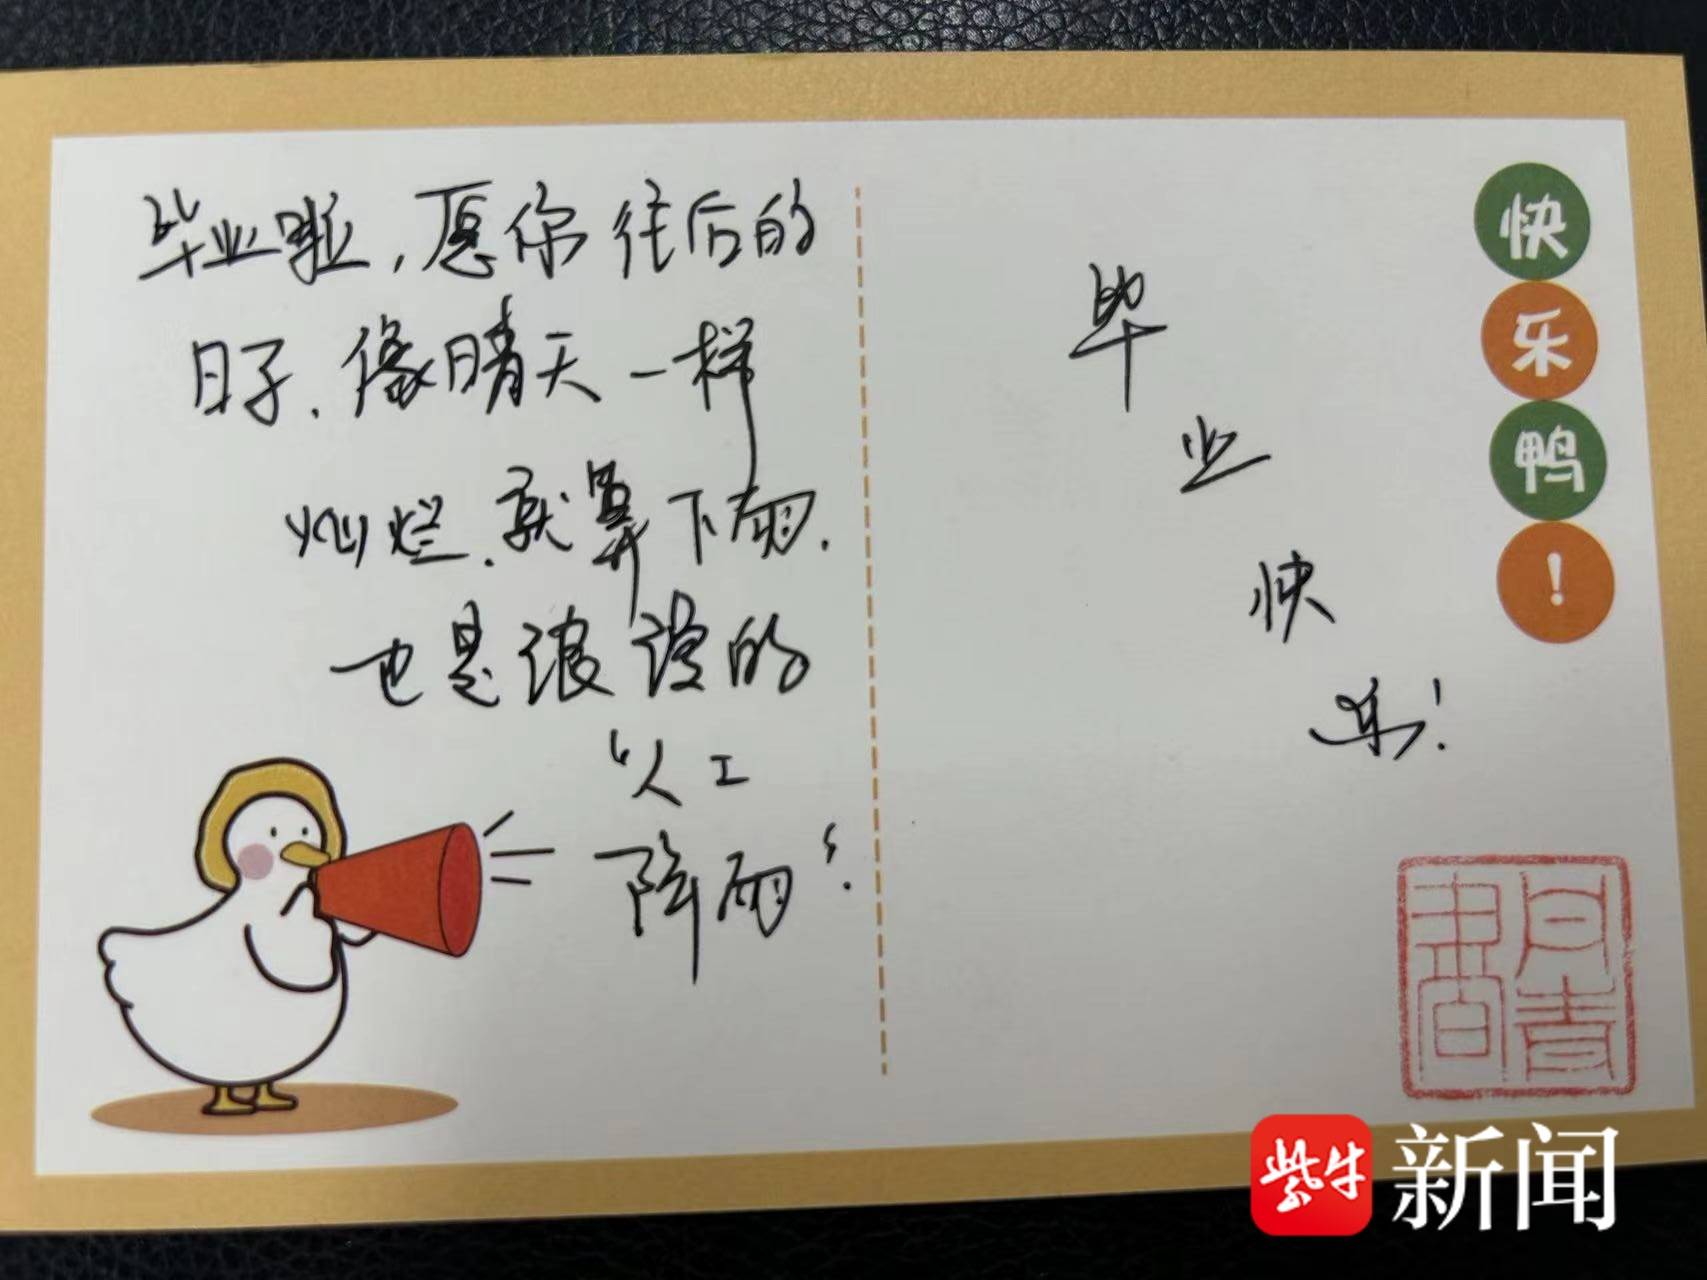 毕业啦，愿你往后的
日子、像晴天一样
灿烂、就算下雨.
也是浪漫的
“人工
降雨”.
毕
业
快
乐！
快
乐
鸭
！
紫牛新闻